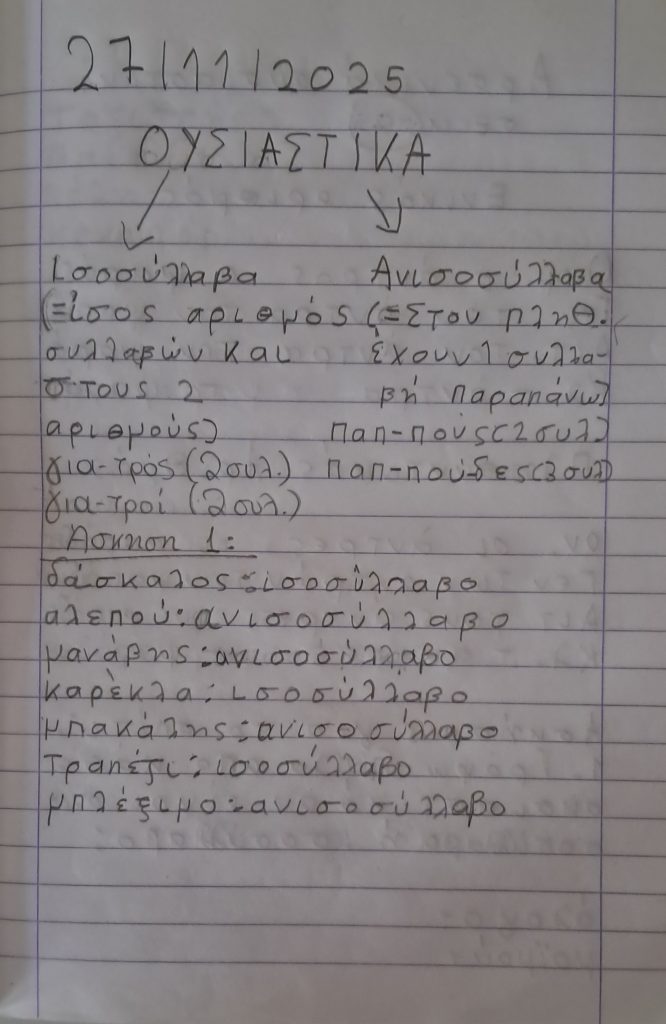 27/11/2025
ΟΥΣΙΑΣΤΙΚΑ
Ισοσύλλαβα Ανισοσύλλαβα
(=ίσος αριθμός (=Στον πληθ.
συλλαβών και έχουν 1 συλλα-
στους 2 βή παραπάνω)
αριθμούς) παπ-πούς(2συλ)
για-τρός(2συλ.) παπ-πού-δες(3συλ)
για-τροί (2συλ.)
Άσκηση 1:
δάσκαλος:ισοσύλλαβο
αλεπού:ανισοσύλλαβο
μανάβης:ανισοσύλλαβο
καρέκλα:ισοσύλλαβο
μπακάλης:ανισοσύλλαβο
τραπέζι:ισοσύλλαβο
μπλέξιμο:ανισοσύλλαβο